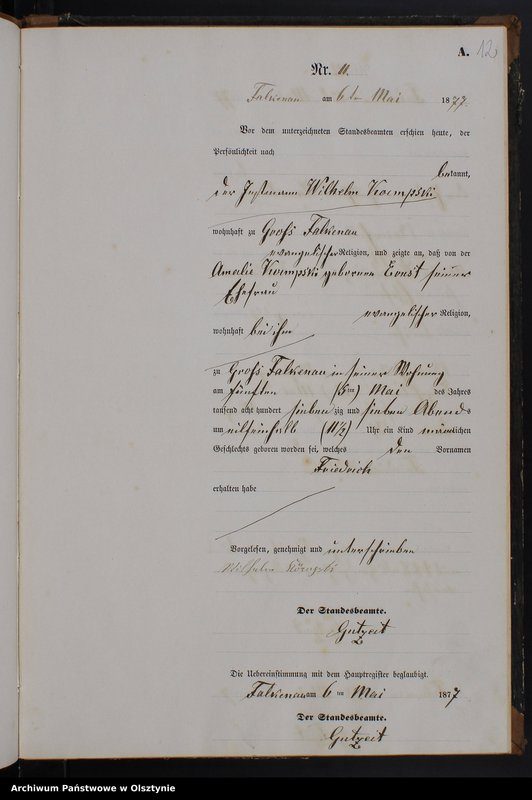 A.
12
Nr. 11.
Falkenau am 6ten Mai 1877.
Vor dem unterzeichneten Standesbeamten erschien heute, der
Persönlichkeit nach
bekannt,
der Instmann Wilhelm Kaempski
wohnhaft zu Groß Falkenau
evangelischer Religion, und zeigte an, daß von der
Amalie Kaempski geborenen Ernst seiner
Ehefrau
evangelischer Religion,
wohnhaft bei ihm
zu Groß Falkenau in seiner Wohnung
am fünften (5ten) Mai des Jahres
tausend acht hundert siebenzig und sieben Abends
um eilfeinhalb (11½) Uhr ein Kind männlichen
Geschlechts geboren worden sei, welches den Vornamen
Friedrich
erhalten habe
Vorgelesen, genehmigt und unterschrieben
Wilhelm
Der Standesbeamte.
Gutzeit
Die Uebereinstimmung mit dem Hauptregister beglaubigt.
Falkenau am 6ten Mai 1877
Der Standesbeamte.
Gutzeit
Archiwum Państwowe w Olsztynie